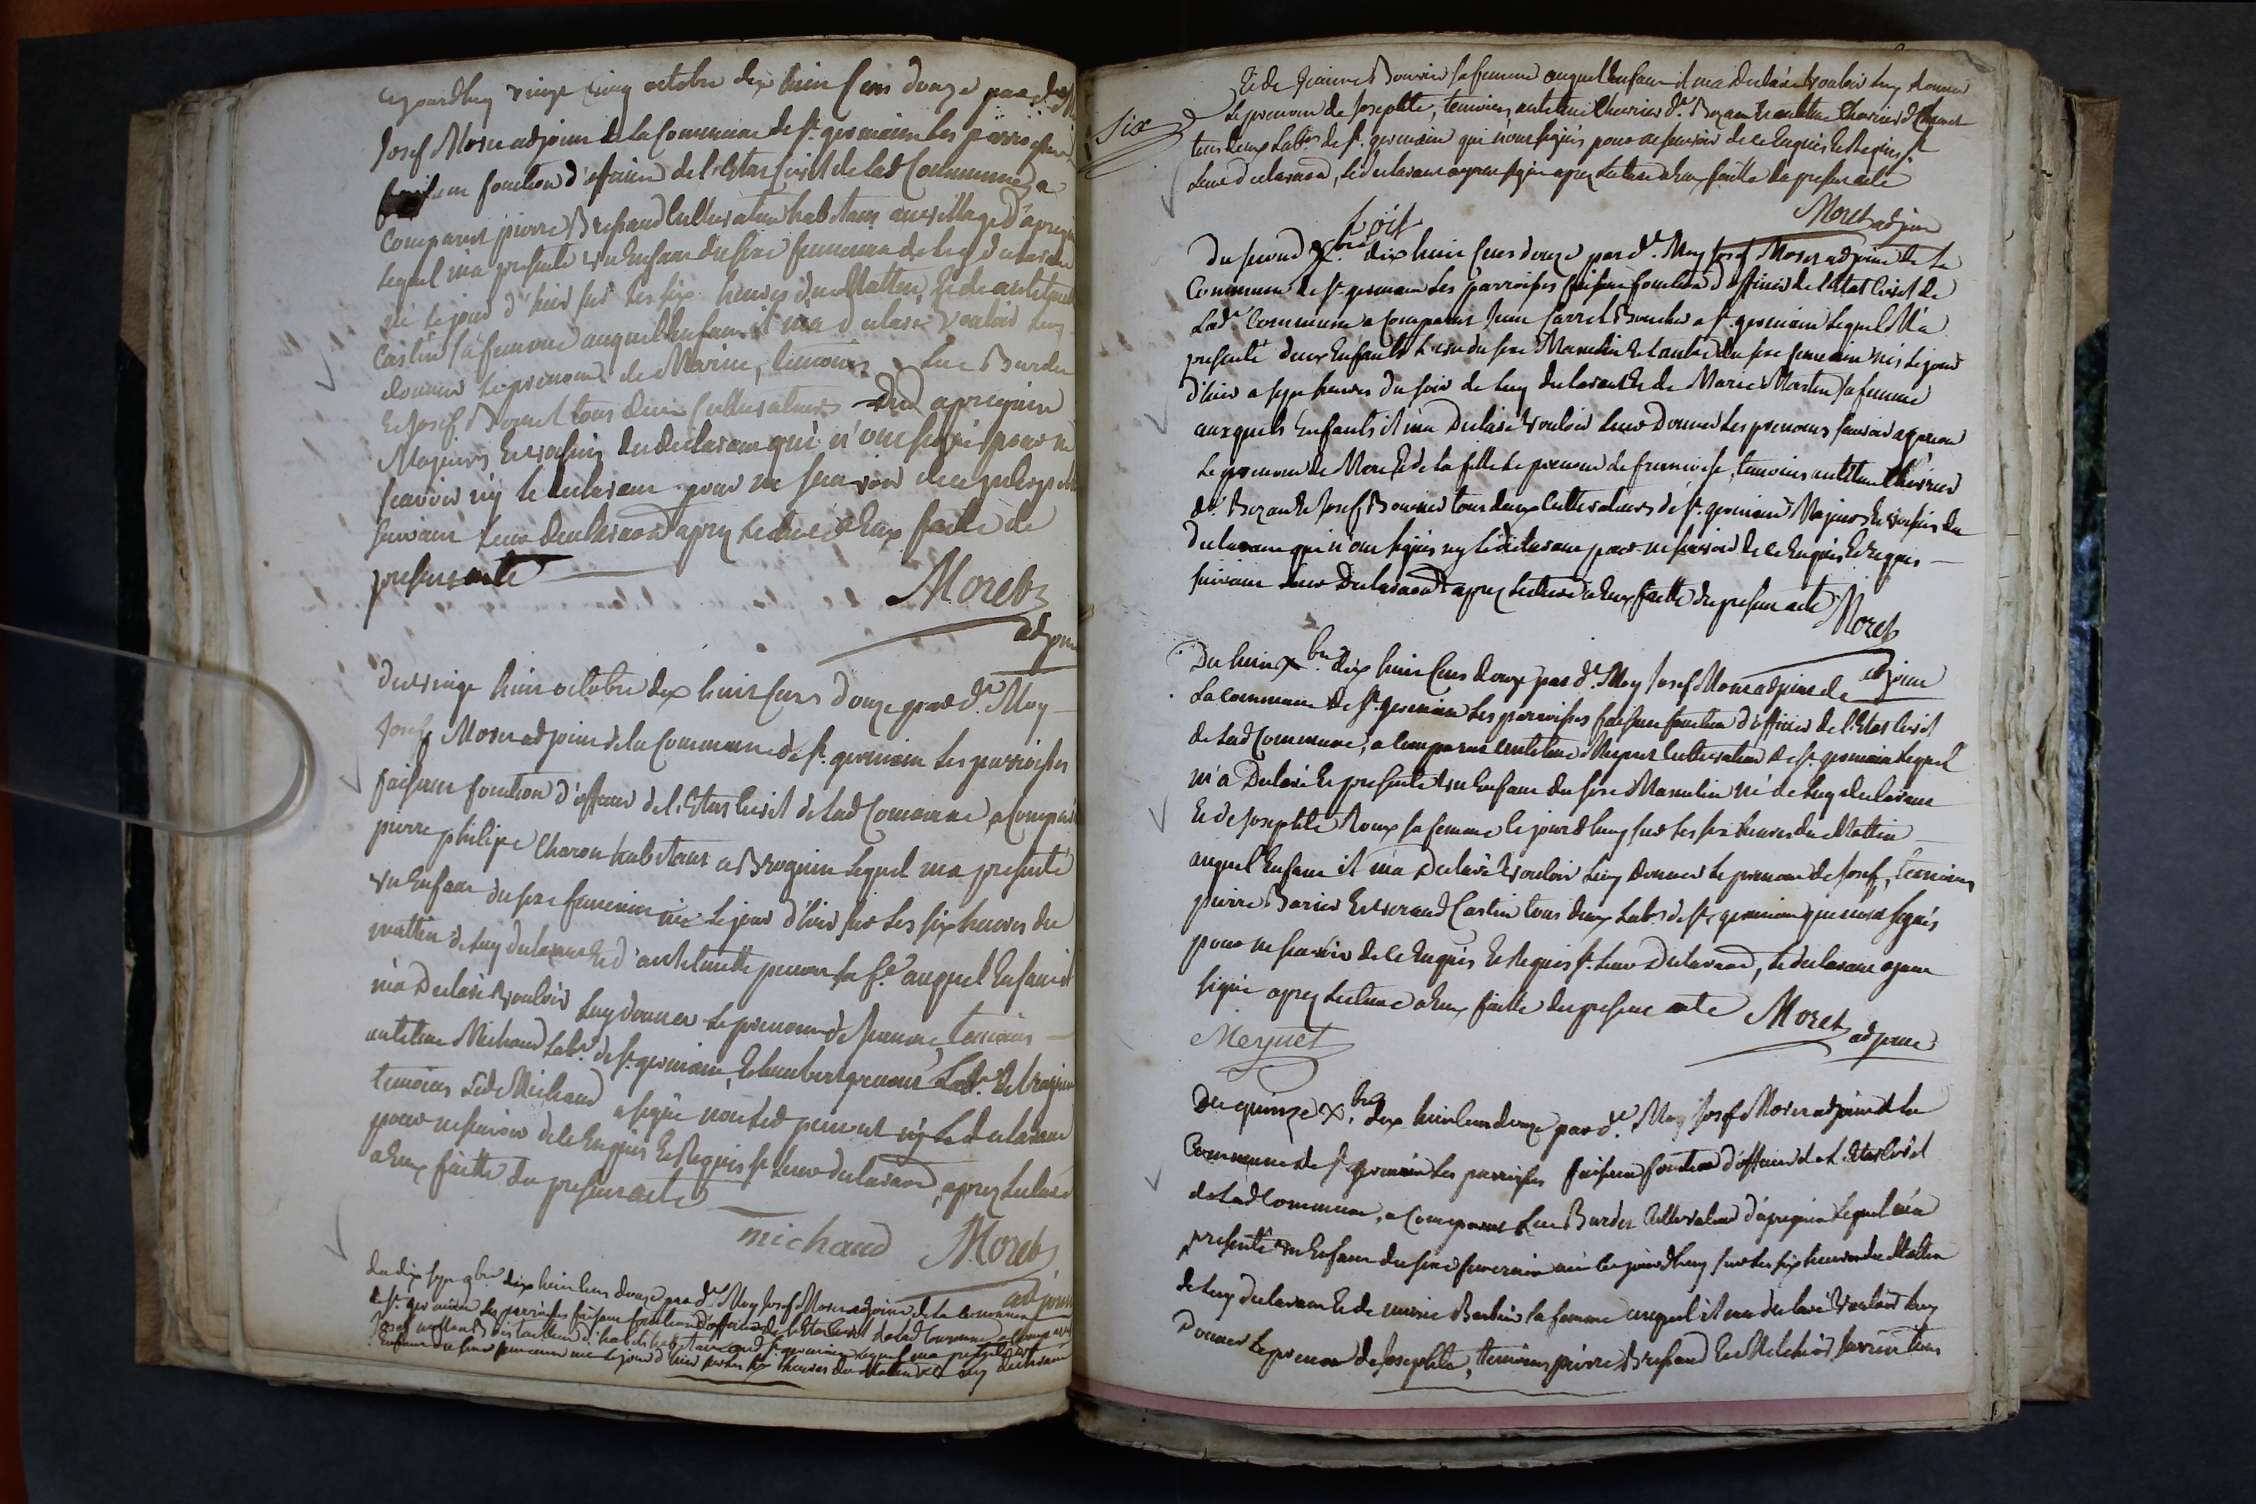 aujourdhuy vingt cinq octobre dix huit cens douze par dvt
Josef Moret adjoint de la Commune de St. germain les parroisses
faisant fonction d'officier de l'Etat Civil de lad Commune a
Comparut pierre Brisaud Cultivateur habitant au village d'apregnin
lequel m'a presenté un Enfant du sexe feminin de luy declarant
né le jour d'hier sur les six heures du Mattin, Et de antelmette
Castin sa femme auquel Enfant il ma declaré vouloir luy
donner le prenom de Marie, temoins Luc Burdet
Et Josef Bonnet tous deux Cultivateurs Dud apregnin
Majeurs Et voisins du declarant qui n'ont signés pour ne
scavoir ny le declarant pour ne scavoir de ce
suivant leur declaraon apres lecture a Eux faitte du
present acte
Moret
adjoint
du vingt huit octobre dix huit Cens douze par dt. Moy
Josef Moret adjoint de la Commune de St. germain les parroisses
faisant fonction d'officier de l'Etat Civil de lad Commune a Comparut
pierre philipe Charon habitant a Brognin lequel ma presenté
un Enfant du sexe feminin née le jour d'hier sur les six heures du
mattin de luy declarant Et d'antelmette pernon sa fe. auquel Enfant il
m'a Declaré vouloir luy donner le prenom de Jeanne temoins
antelme Michaud Labr. de St. germain, Et humbert Labr. de brognin
temoins led Michaud a signé non led ny le declarant
pour ne scavoir de ce Enquis Et Requis St. leur declaraon, apres lecture
a Eux faitte du present acte
michaud Moret
adjoint
du dix sept 9bre dix huit cens douze par dt. Moy Josef Moret adjoint de la commune
de St. germain les parroisses faisant fonction d'officier de l'Etat Civil de lad Commune a Comparut
Josef habitant au d. St. germain lequel ma presenté un
Enfant du sexe feminin née le jour d'hier sur les six heures du Mattin de luy declarant
Et de Jeanne Bouvier sa femme auquel Enfant il ma declaré vouloir luy donner
Six
le prenom de Josephte, temoins antelme Chevrier dt. Bozan Et antelme Chevrier dt
tous deux Labrs. de St. germain qui n'ont signés pour ne scavoir de ce Enquis Et Requis St.
leur declaraon, le declarant ayant signé apres lecture a Eux faitte du present acte
Moret adjoint
Du second Xbre dix huit Cens douze par dt. Moy Josef Moret adjoint de la
Commune de St. germain les parroisses faisant fonction d'officier de l'Etat Civil de
Lade Commune a Comparut Jean Carrel a St. germain lequel M'a
presenté deux Enfants l'un du sexe Masculin Et l'autre du sexe feminin nés le jour
d'hier a sept heures du soir de luy declarant Et de Marie Martin sa femme
auxquels Enfants il m'a Declaré vouloir leur Donner les prenoms scavoir au garcon
le prenom de Marc Et de la fille le prenom de francoise, temoins antelme Chevrier
dt. Bozan Et Josef Bouvier tous deux Cultivateurs de St. germain Majeurs Et voisins du
declarant qui n'ont signés ny le declarant pour ne scavoir de ce Enquis Et Requis
suivant leur Declaraon apres lecture a Eux faitte du present acte Moret
adjoint
Du huit Xbre dix huit Cens douze par dt. Moy Josef Moret adjoint de
La Commune de St. germain les parroisses faisant fonction d'officier de l'Etat Civil
de lad Commune, a Comparut antelme Meynet Cultivateur de St. germain lequel
m'a Declaré Et presenté un Enfant du sexe Masculin né de luy declarant
Et de Josephte Roux sa femme le jourdhuy sur les six heures du Mattin
auquel Enfant il m'a Declaré vouloir luy donner le prenom de Josef, temoins
pierre Barier Et verand Castin tous deux Labrs de St. germain qui n'ont signés
pour ne scavoir de ce Enquis Et Requis St. leur Declaraon, le declarant ayant
signé apres lecture a Eux faitte du present acte Moret
adjoint
Meynet
Du quinze Xbre dix huit cens douze par dt. Moy Josef Moret adjoint de la
Commune de St. germain les parroisses faisant fonction d'officier de l'Etat Civil
de lad Commune, a Comparut Luc Burdet Cultivateur d'apregnin lequel m'a
presenté un Enfant du sexe feminin née le jourdhuy sur les six heures du Mattin
de luy declarant Et de marie Barbier sa femme auquel il ma declaré vouloir luy
Donner le prenom de Josephte, temoins pierre Brisaud Et Melchior tous